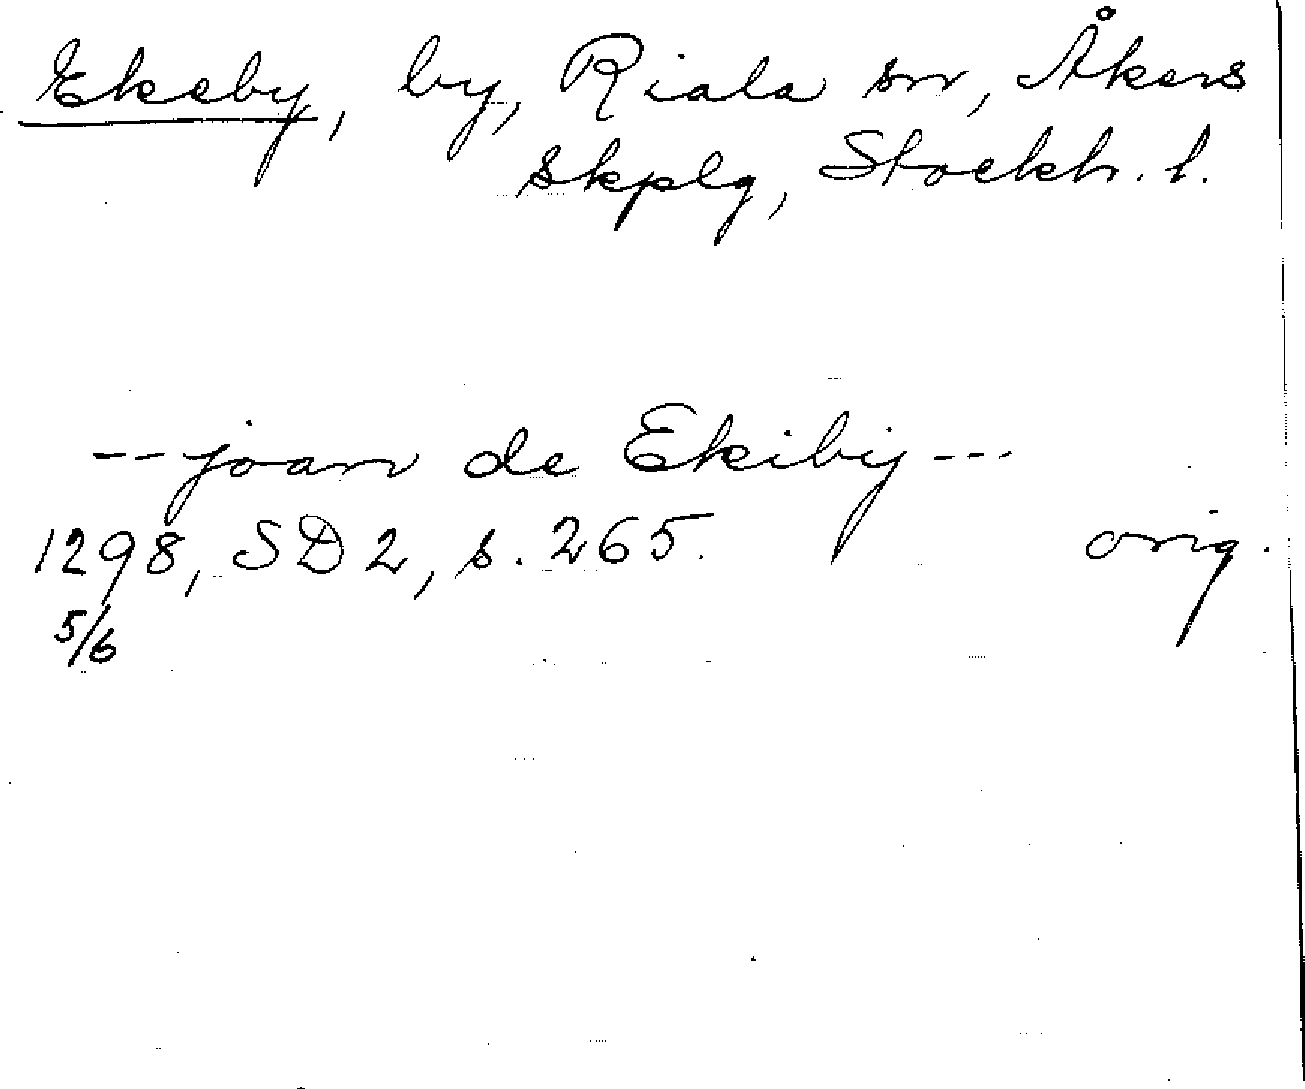 Ekeby, by, Riala sn, Åkers
skplg, Stockh. l.
-- joan de Ekibij ---
1298, SD 2, s. 265. orig.
5/6